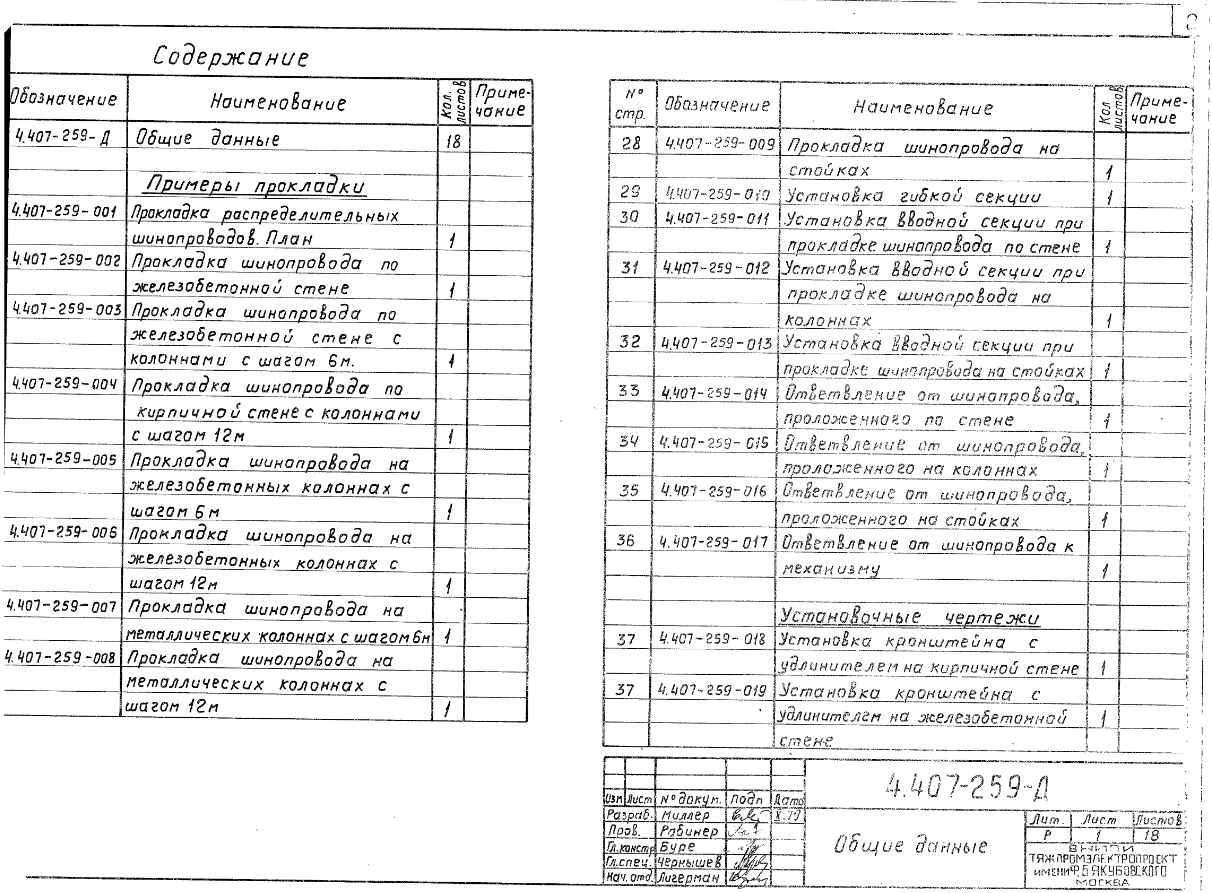 2
Содержание
Обозначение Наименование Кол. листов Приме-
чание
4.407-259-Д Общие данные 18
Примеры прокладки
4.407-259-001 Прокладка распределительных
шинопроводов. План 1
4.407-259-002 Прокладка шинопровода по
железобетонной стене 1
4.407-259-003 Прокладка шинопровода по
железобетонной стене с
колоннами с шагом 6м. 1
4.407-259-004 Прокладка шинопровода по
кирпичной стене с колоннами
с шагом 12м 1
4.407-259-005 Прокладка шинопровода на
железобетонных колоннах с
шагом 6м 1
4.407-259-006 Прокладка шинопровода на
железобетонных колоннах с
шагом 12м 1
4.407-259-007 Прокладка шинопровода на
металлических колоннах с шагом 6м 1
4.407-259-008 Прокладка шинопровода на
металлических колоннах с
шагом 12м 1
№ стр. Обозначение Наименование Кол листов Приме-
чание
28 4.407-259-009 Прокладка шинопровода на
стойках 1
29 4.407-259-010 Установка гибкой секции 1
30 4.407-259-011 Установка вводной секции при
прокладке шинопровода по стене 1
31 4.407-259-012 Установка вводной секции при
прокладке шинопровода на
колоннах 1
32 4.407-259-013 Установка вводной секции при
прокладке шинопровода на стойках 1
33 4.407-259-014 Ответвление от шинопровода,
проложенного по стене 1
34 4.407-259-015 Ответвление от шинопровода,
проложенного на колоннах 1
35 4.407-259-016 Ответвление от шинопровода,
проложенного на стойках 1
36 4.407-259-017 Ответвление от шинопровода к
механизму 1
Установочные чертежи
37 4.407-259-018 Установка кронштейна с
удлинителем на кирпичной стене 1
37 4.407-259-019 Установка кронштейна с
удлинителем на железобетонной 1
стене
4.407-259-Д
Изм Лист № докум. Подп Дата
Разраб. Миллер X.79
Пров. Рабинер
Гл.констр Буре
Гл.спец. Чернышев
Нач. отд. Лигерман
Общие данные
Лит. Лист Листов
Р 1 18
ВНИПИ
ТЯЖПРОМЭЛЕКТРОПРОЕКТ
ИМЕНИ Ф.Б.ЯКУБОВСКОГО
МОСКВА